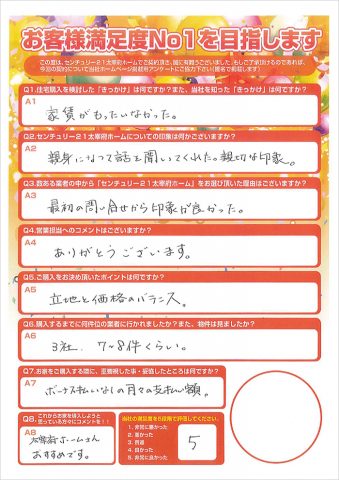 お客様満足度No1を目指します
この度は、センチュリー21太宰府ホームでご契約頂き、誠に有難うございました。もしご了承頂けるのであれば、
今回の契約について当社ホームページ掲載用アンケートにご協力下さい(匿名で掲載します)
Q1.住宅購入を検討した「きっかけ」は何ですか?また、当社を知った「きっかけ」は何ですか?
A1
家賃がもったいなかった。
Q2.センチュリー21太宰府ホームについての印象は何かございますか?
A2
親身になって話を聞いてくれた。親切な印象。
Q3.数ある業者の中から「センチュリー21太宰府ホーム」をお選び頂いた理由はございますか?
A3
最初の問い合せから印象が良かった。
Q4.営業担当へのコメントはございますか?
A4
ありがとうございます。
Q5.ご購入をお決め頂いたポイントは何ですか?
A5
立地と価格のバランス。
Q6.購入するまでに何件位の業者に行かれましたか?また、物件は見ましたか?
A6
3社. 7~8件くらい。
Q7.お家をご購入する際に、重要視した事・妥協したところは何ですか?
A7
ボーナス払いなしの月々の支払い額。
Q8.
これからお家を購入しようと
思っている方々にコメントを!!
A8
太宰府ホームさん
おすすめです。
当社の満足度を5段階で評価してください。
1. 非常に悪かった
2. 悪かった
3. 普通
4. 良かった
5. 非常に良かった
5